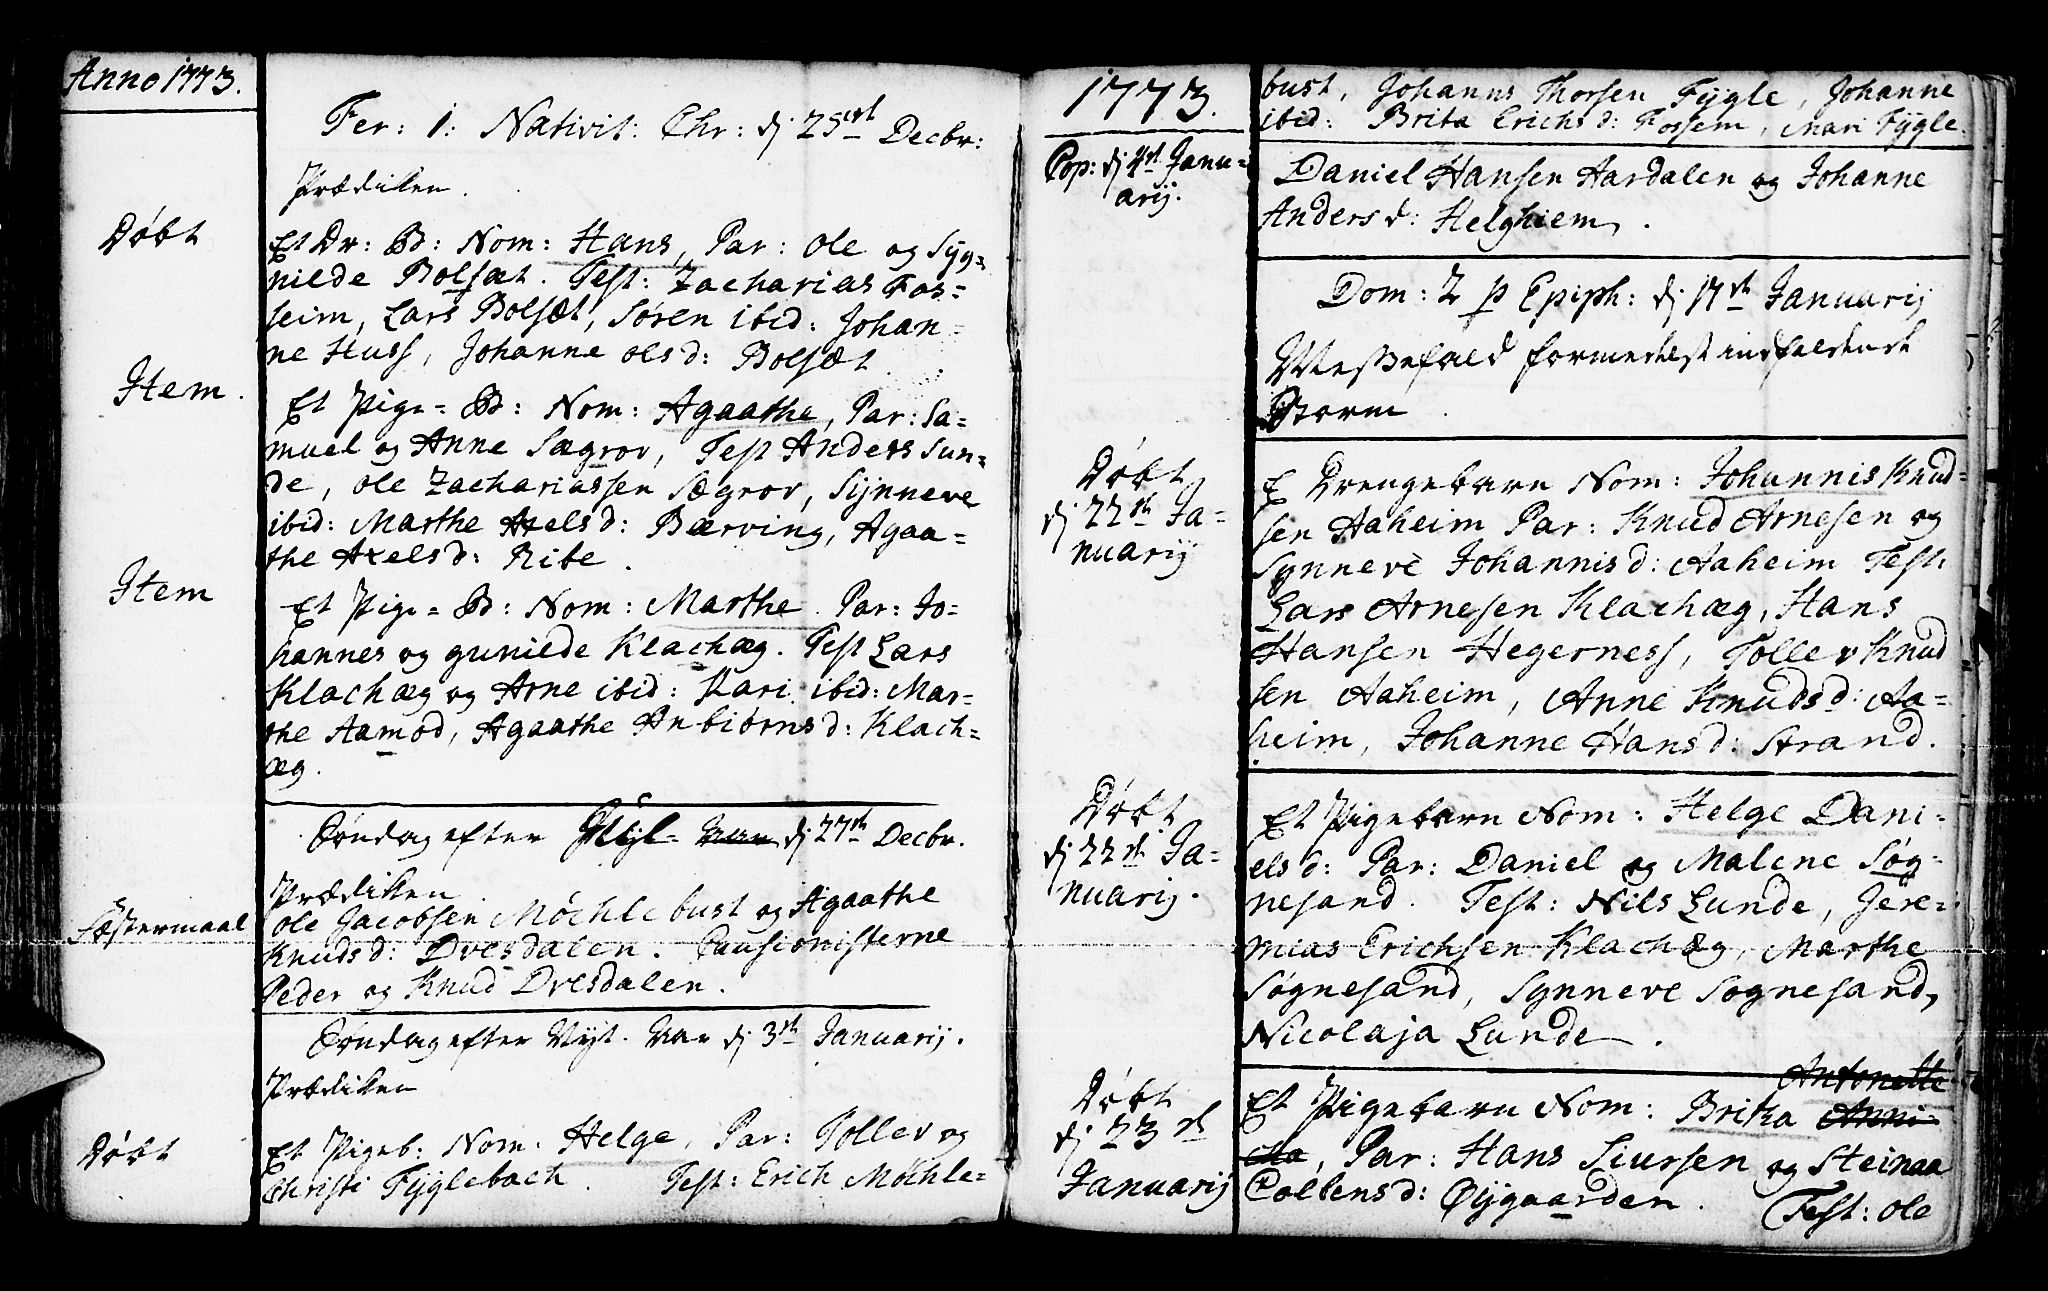 Anno 1773.
Fer: 1: Nativit: Chr: dj 25de Decbr:
Prædiken.
Døbt
Et Dr: B: Nom: Hans, Par: Ole og Syg=
nilde Bolsæt. Test: Zacharias Fos=
seim, Lars Bolsæt, Søren ibid: Johan=
ne Huss, Johanne Olsd: Bolsæt
Item.
Et Pige=B: Nom: Agaathe, Par: Sa=
muel og Anne Sægrov, Test Anders Sun=
de, Ole Zachariassen Sægrov, Synneve
ibid: Marthe Axelsd: Bærving, Agaa=
the Axelsd: Ribe.
Item
Et Pige=B: Nom: Marthe. Par: Jo=
hannes og gunilde Klachæg. Test Lars
Klachæg og Arne ibid: Kari ibid: Mar=
the Aamod, Agaathe Anbiørnsd: Klach=
æg.
Søndag efter Juul dj 27de Decbr.
Prædiken
Fæstermaal
Ole Jacobsen Møchlebust og Agaathe
Knudsd: Dvesdalen. Causionisterne
Peder og Knud Dvesdalen.
Søndag efter Nyt-Aar dj 3de Januarij.
Prædiken
Døbt
Et Pigeb: Nom. Helge, Par: Tollev og
Christi Fyglebach. Test: Erich Møchle=
1773.
bust, Johanns Thorsen Fygle, Johanne
ibid: Brita Erichsd: Fossem, Mari Fygle.
Cop: dj 4de Janu=
arij.
Daniel Hansen Aardalen og Johanne
Andersd: Helghiem.
Dom: 2 p Epiph: dj 17de Januarij
Messefald formedelst indfaldende
Storm.
Døbt
dj 22de Ja=
nuarij
E Drengebarn Nom: Johannis Knud=
sen Aaheim Par: Knud Arnesen og
Synneve Johannisd: Aaheim Test:
Lars Arnesen Klachæg, Hans
Hansen Hegerness, Tollev Knud
sen Aaheim, Anne Knudsd: Aa=
heim, Johanne Hansd: Strand.
Døbt
dj 22de Ja=
nuarij.
Et Pigebarn Nom: Helge Dani=
elsd: Par: Daniel og Malene Søg=
nesand. Test: Nils Lunde, Jere=
mias Erichsen Klachæg, Marthe
Søgnesand, Synneve Søgnesand,
Nicolaja Lunde.
Døbt
dj 23de
Januarij
Antonette
Et Pigebarn Nom: Brita Anni=
cha, Par: Hans Siursen og Steinaa
Colbensd: Øygaarden. Test: Ole